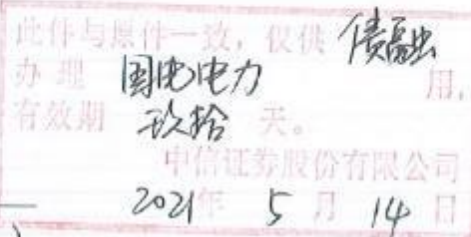 此件与原件一致，仅供 债融
办理 国电电力 用，
有效期 玖拾 天。
中信证券股份有限公司
2021年 5月 14日